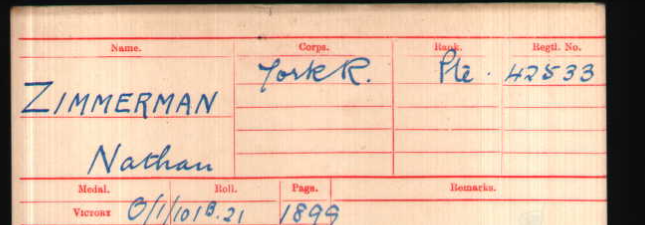 Name. Corps. Rank. Regtl. No.
ZIMMERMAN York R. Pte. 42533
Nathan
Medal. Roll. Page. Remarks.
VICTORY O/1/101B.21 1899